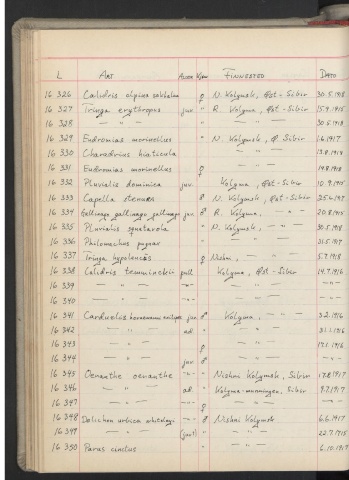 L Art Alder Kjønn Finnested Dato
16 326 Calidris alpina sakhalina ♀ N. Kolymsk, Øst-Sibir 30.5.1918
16 327 Tringa erythropus juv. " R. Kolyma, Øst-Sibir 15.9.1915
16 328 — " — " — " — 30.5.1918
16 329 Eudromias morinellus " N. Kolymsk, Ø. Sibir 1.6.1917
16 330 Charadrius hiaticula — " —
16 331 Eudromias morinellus ♀ — " —
16 332 Pluvialis dominica juv. Kolyma, Øst-Sibir 10.9.1915
16 333 Capella stenura ♂ N. Kolymsk, Øst-Sibir
16 334 Gallinago gallinago gallinago juv. ♂ R. Kolyma, — " — 20.8.1915
16 335 Pluvialis squatarola " N. Kolymsk, — " — 30.5.1917
16 336 Philomachus pugnax " — " — 31.5.1917
16 337 Tringa hypoleucos ♀ Nishni, — " — 5.7.1918
16 338 Calidris temminckii pull. Kolyma, Øst-Sibir 14.7.1916
16 339 — " — — " — — " —
16 340 — " — — " — — " —
16 341 Carduelis hornemanni exilipes juv. ♂ Kolyma, — " — 3.2.1916
16 342 — " — ad. " — " — 31.1.1916
16 343 — " — ♀ — " —
16 344 — " — juv. ♂ — " —
16 345 Oenanthe oenanthe " Nishni Kolymsk, Sibir 17.8.1917
16 346 — " — ad. " Kolyma-munningen, Sibir 9.7.1917
16 347 — " — ♀ — " — — " —
16 348 Delichon urbica whiteleyi ♂ Nishni Kolymsk 6.6.1917
16 349 — " — " — " — 22.7.1918
16 350 Parus cinctus " — " — 6.10.1917